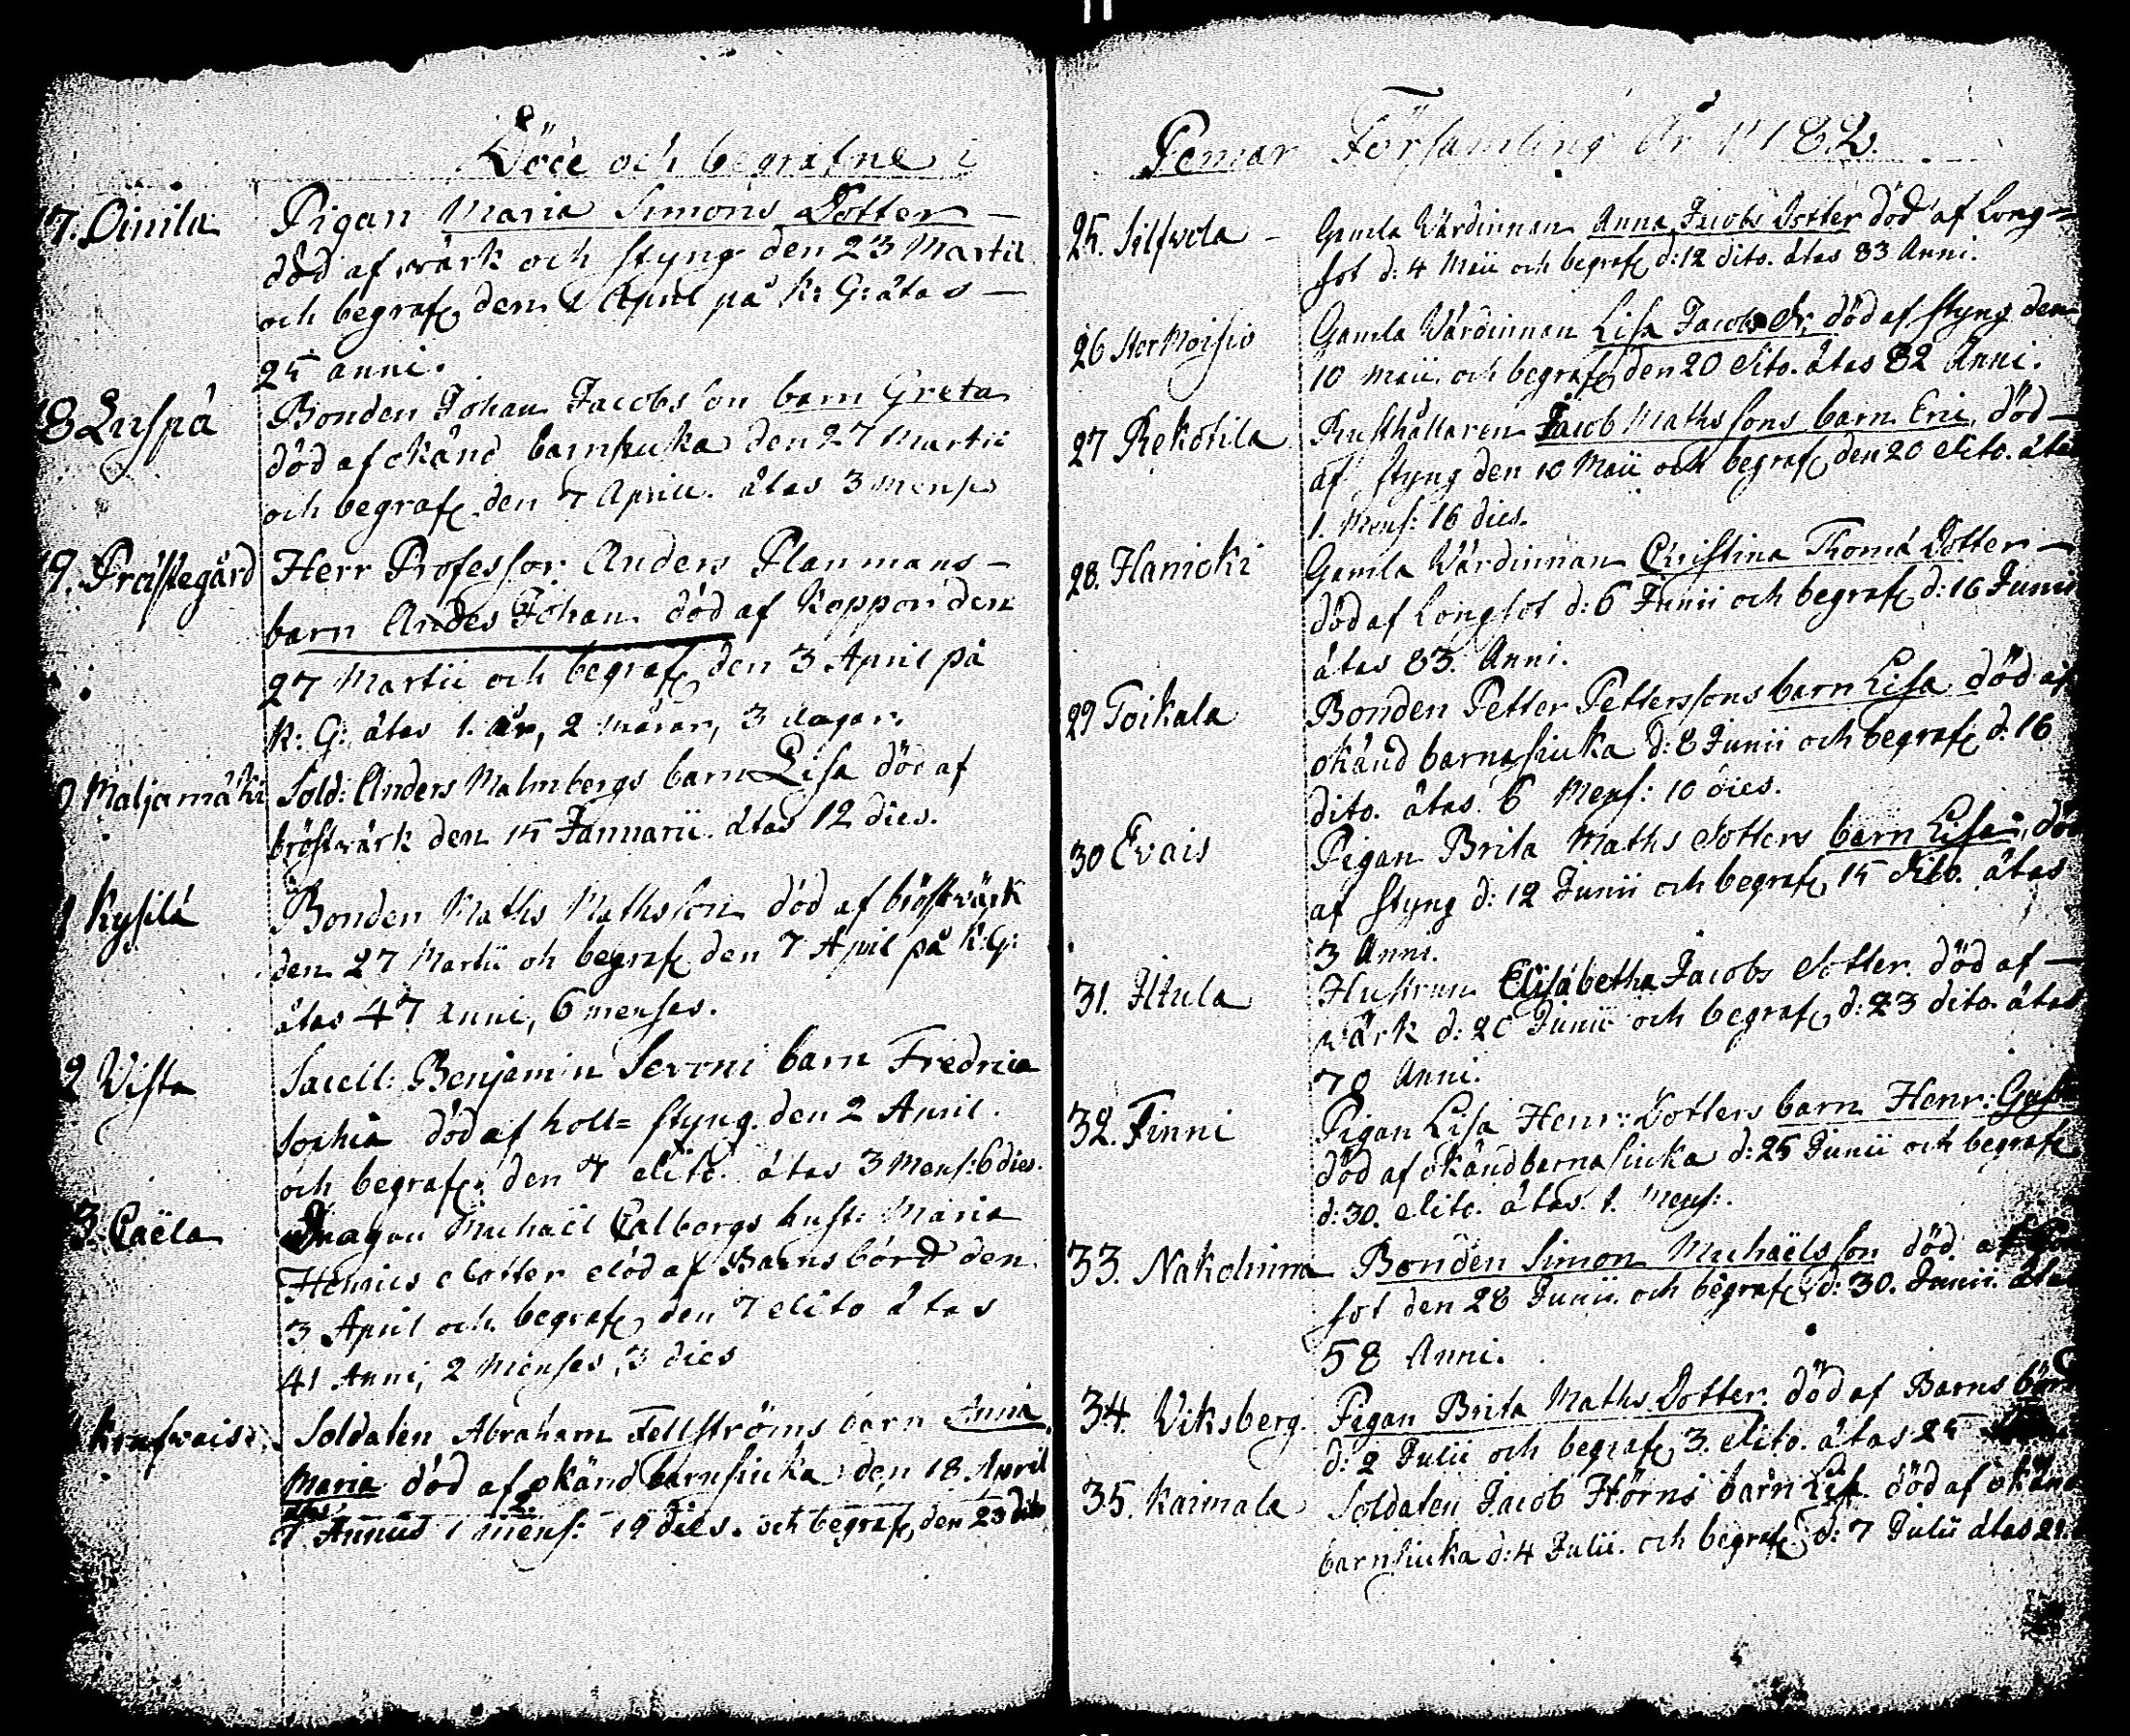 Döde och begrafne i
17. Oinila Pigan Maria Simons Dotter
död af wärk och styng den 23 Martii
och begraf. den 1 April på K: G: ätas
25 anni.
18 Luspä Bonden Johan Jacobsson barn Greta
död af okänd barnsuka den 27 Martii
och begraf. den 7 Aprill. ätas 3 mens.
19. Prästegård Herr Professor Anders Planmans
barn Andes Johan död af koppor den
27 Martii och begraf. den 3 April på
K: G: ätas 1. år, 2 månar, 3 dagar.
Maljamäki Sold: Anders Malmbergs barn Lisa död af
bröstvärk den 15 Januarii. ätas 12 dies.
1 Kysilä Bonden Maths Mathsson död af bröstvärk
den 27 Martii oh begraf. den 7 April på K: G:
ätas 47 anni, 6 menses.
2 Vista Sacell: Benjamin Severni barn Fredrica
Sophia död af holl= styng. den 2 April.
och begraf. den 7 dito. ätas 3 Mens: 6 dies.
3. Caëla Dragon Michaël Calbergs hust: Maria
Henrics dotter död af Barnsbörd den
3 April och begraf. den 7 dito ätas
41 Anni, 2 Menses, 3 dies
Krafvais Soldaten Abraham Fellströms barn Anna
Maria död af okänd barnsiuka den 18 April
ätas
1 Annus 1 mens: 19 dies. och begraf, den 23 dito
Pemar Församling År 1782.
25. Silfvola Gamla Värdinnan Anna Jacobs Dotter död af Long=
sot d: 4 Maii och begraf d: 12 dito. ätas 83 Anni.
26 Stor Moisio Gamla Värdinnan Lisa Jacobs dr, död af styng den
10 Maii. och begraf den 20 dito. ätas 82 Anni.
27 Rekotila Rusthållaren Jacob Mathssons barn Eric, död
af styng den 10 Maii och begraf. den 20 dito. ätas
1. Mens: 16 dies.
28. Hanioki Gamla Värdinnan Christina Thomä Dotter
död af Longsot d: 6 Junii och begraf d: 16 Junii
ätas 83. Anni.
29 Toikala Bonden Petter Petterssons barn Lisa död af
okänd barnasiuka d: 8 Junii och begraf d. 16
dito. ätas. 6 Mens: 10 dies.
30 Evais Pigan Brita Maths Dotters barn Lisa, död
af styng d: 12 Junii och begraf. 15 dito. ätas
3 Anni.
31. Iltula Hustrun Elisabetha Jacobs Dotter. död af
värk d: 20 Junii och begraf. d: 23 dito. ätas
78 Anni.
32. Finni Pigan Lisa Henr: Dotters barn Henr: Gust
död af okänd barnasiuka d: 25 Junii och begraf
d: 30. dito. ätas. 1. Mens:.
33. Nakolinna Bonden Simon Michaëlsson död. af
sot den 28 Junii. och begraf. d: 30. Junii. ätas
58 Anni.
34. Viksberg. Pigan Brita Maths Dotter. död af Barnsbörd
d: 2 Julii och begraf. 3. dito. ätas 25
35. Kaimala Soldaten Jacob Hörns barn Lisa död af okänd
barnsiuka d: 4 Julii. och begraf. d: 7 Julii ätas 21.